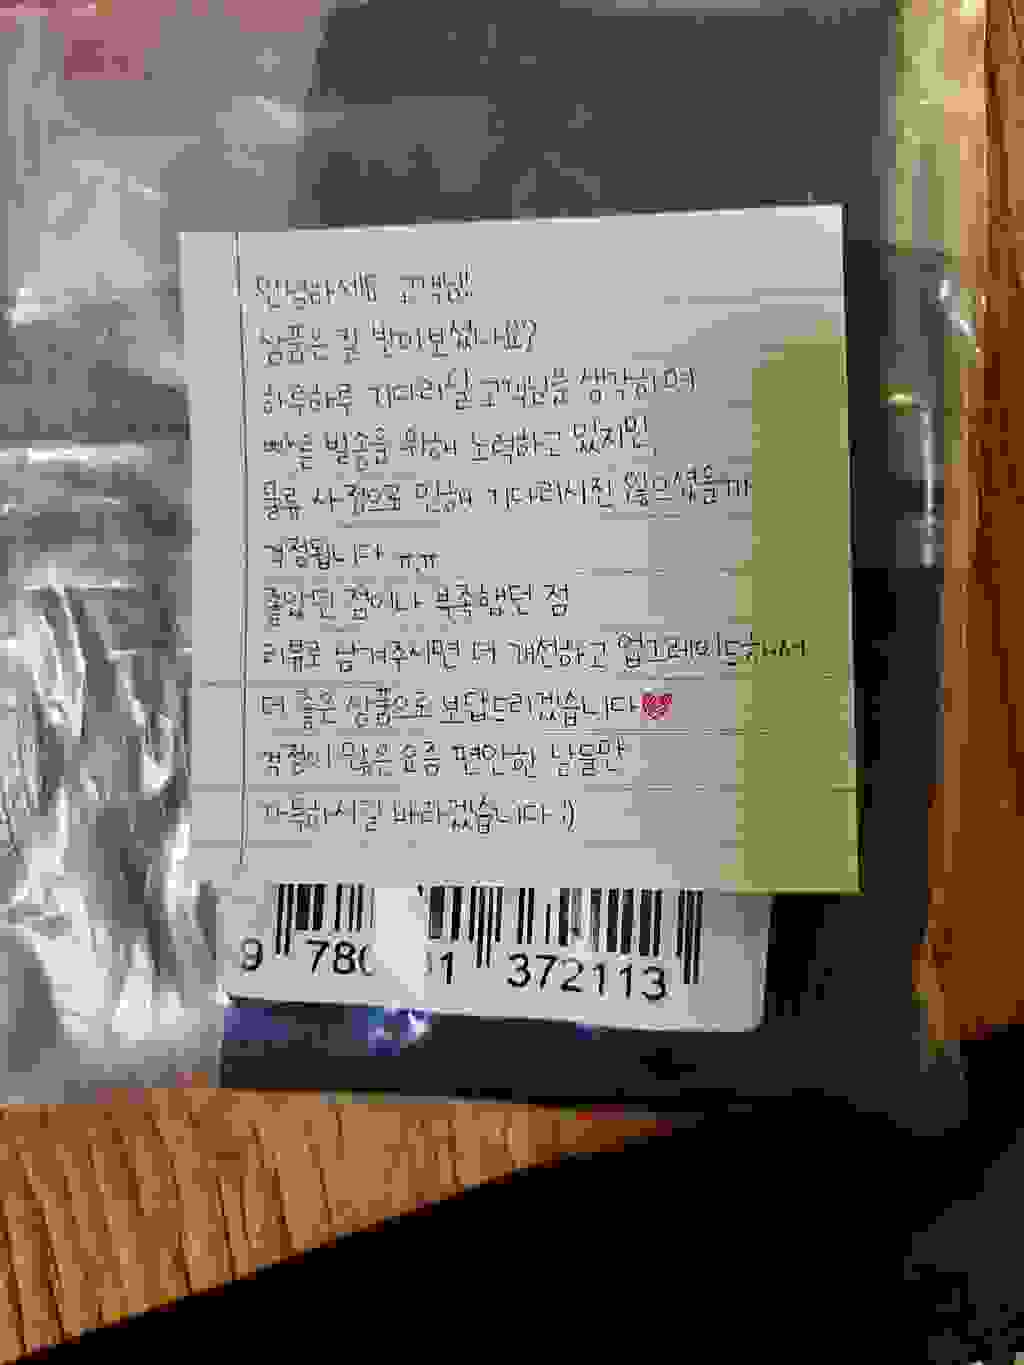 안녕하세요 고객님!
상품은 잘 받아보셨나요?
하루하루 기다리실 고객님을 생각하며
빠른 발송을 위해 노력하고 있지만,
물류 사정으로 인해 기다리시진 않으셨을까
걱정됩니다 ㅠㅠ
좋았던 점이나 부족했던 점
리뷰로 남겨주시면 더 개선하고 업그레이드해서
더 좋은 상품으로 보답드리겠습니다
걱정이 많은 요즘 편안한 날들만
가득하시길 바라겠습니다 :)
9 372113